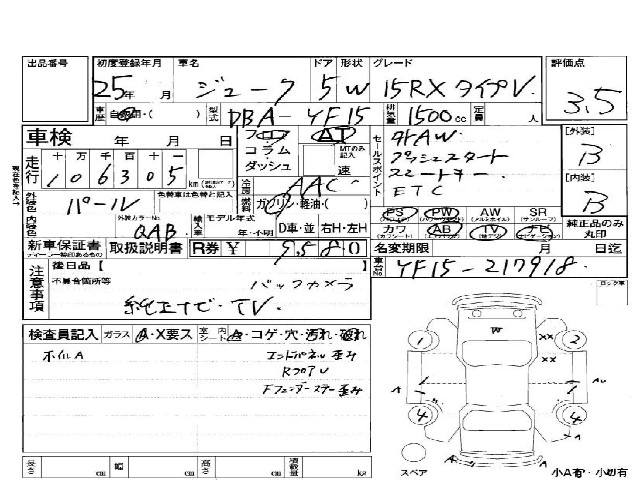 出品番号 初度登録年月 車名 ドア 形状 グレード 評価点
25年 月 ジューク 5 W 15RX タイプV 3.5
車歴 自家用・( ) 型式 DBA-YF15 排気量 1500cc 定員 人
車検 年 月 日 フロア コラム ダッシュ AT MTのみ記入 速
セールスポイント 社外AW
プッシュスタート
スマートキー
ETC
[外装] B
[内装] B
走行 十 万 千 百 十 一
106305 km
冷房 AAC
外装色 パール 色替車は色替と記入 燃料 ガソリン・軽油・( )
内装色 外装カラーNo. QAB 輸入車 モデル年式 年・不明 D車・並 右H・左H
PS PW AW SR
カワ AB TV ナビ 純正品のみ丸印
新車保証書 取扱説明書 R券 ¥ 9,580 名変期限 月 日迄
注意事項 後日品【
不具合箇所等 バックカメラ
純正ナビ・TV
車台No. YF15-217918
検査員記入 ガラス A・X要ス 室内 シート A・コゲ・穴・汚れ・破れ
ホイルA エンドパネル歪み
RフロアU
Fフェンダーステー歪み
ロック車
1 2
W
XX
XX
A AU
4 4
A
A
スペア 小A有・小凹有
長さ cm 幅 cm 高さ cm 積載量 kg